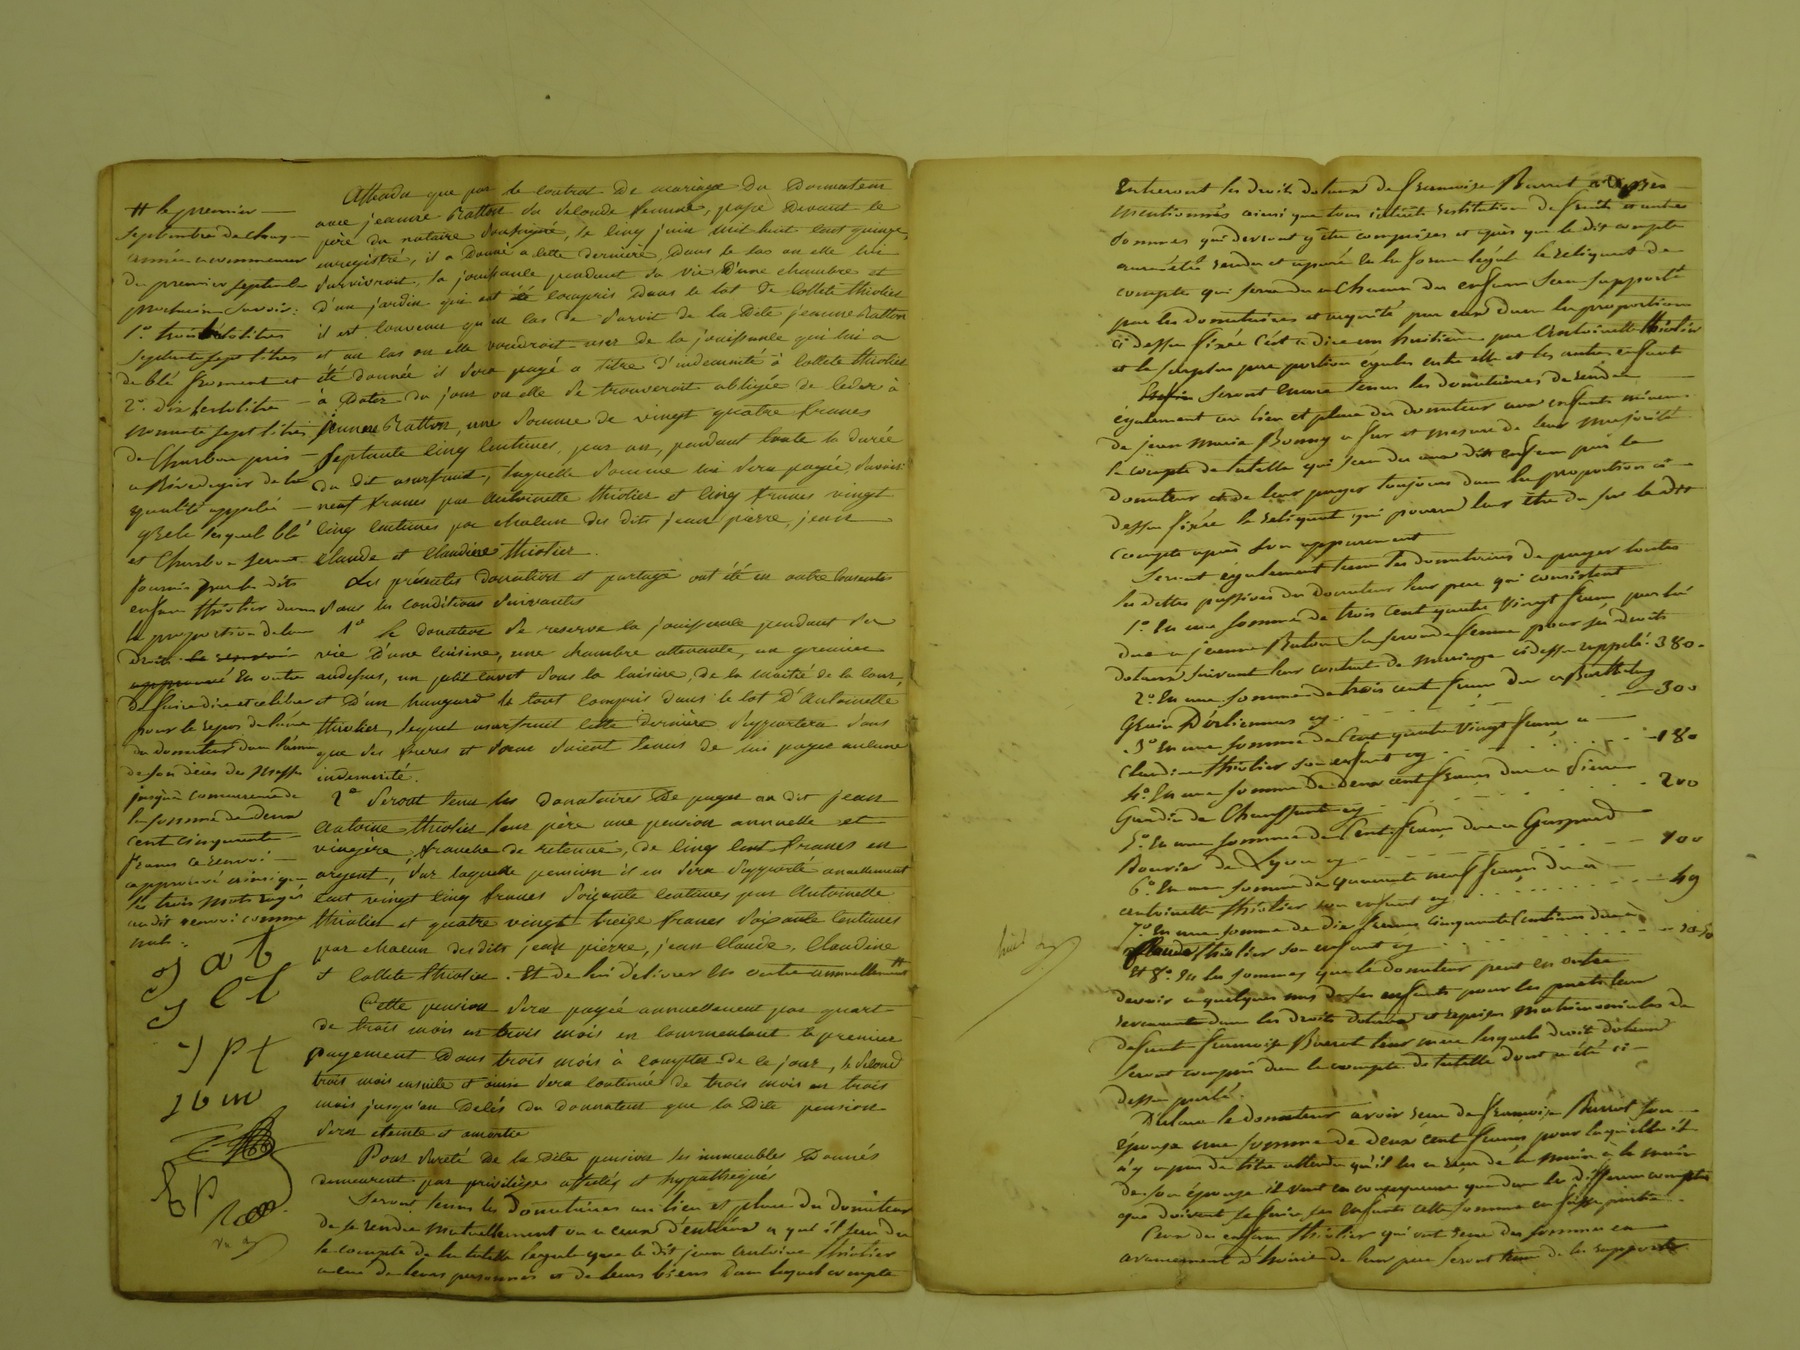 Attendu que par le contrat de mariage du Donateur
avec jeanne Ratton sa seconde femme, passé devant le
père du notaire soussigné, le cinq juin mil huit cent quinze,
enregistré, il a donné a cette dernière, dans le cas ou elle lui
survivroit, la jouissance pendant sa vie d'une chambre et
d'un jardin qui est été compris dans le lot de Collete thiolier
il est convenu qu'en cas de survit de la dite jeanne Ratton
et au cas ou elle voudroit user de la jouissance qui lui a
été donnée il sera payé a titre d'indemnité à Collete thiolier
à dater du jour ou elle se trouveroit obligée de ceder à
jeanne Ratton, une somme de vingt quatre francs
septante cinq centimes, par an, pendant toute la durée
du dit usufruit, laquelle somme lui sera payée, savoir:
neuf francs par Antoinette thiolier et cinq francs vingt
cinq centimes par chacun des dits jean pierre, jean
Claude et Claudine thiolier.
Les présentes donations et partage ont été en outre consenties
sous les conditions suivantes
1° le donateur se reserve la jouissance pendant sa
vie d'une cuisine, une chambre attenante, un grenier
audessus, un petit cuvet sous la cuisine, de la moitié de la cour,
et d'un hangard le tout compris dans le lot d'Antoinette
thiolier, lequel usufruit cette dernière supportera sans
que ses freres et sœur soient tenus de lui payer aucune
indemnité.
2° Seront tenu les donataires de payer au dit jean
Antoine thiolier leur père une pension annuelle et
viagère, franche de retenue, de cinq cent francs en
argent, sur laquelle pension il en sera supporté annuellement
cent vingt cinq francs soixante centimes par Antoinette
thiolier et quatre vingt treize francs soixante centimes
par chacun des dits jean pierre, jean Claude, Claudine
et Collete thiolier. Et de lui délivrer en outre annuellement #
Cette pension sera payée annuellement par quart
de trois mois en trois mois en commencant le premier
payement dans trois mois à compter de ce jour, le second
trois mois ensuite et ainsi sera continué de trois mois en trois
mois jusqu'au Décés du donateur que la dite pension
sera eteinte et amortie
Pour sureté de la dite pension les immeubles donnés
demeurent par privilége affectés et hypothéqués
Seront tenus les donataires au lieu et place du donateur
de se rendre mutuellement ou a ceux d'entr'eux a qui il sera du
le compte de la tutelle legale que le dit jean Antoine thiolier
a eue de leurs personnes et de leurs biens dans lequel compte
# le premier
septembre de chaque
année a commencer
du premier septembre
prochain savoir:
1° trois hectolitres
septante sept litres
de blé froment et
2° dix hectolitres
nonante sept litres
de Charbon pris
a Bérodogier de la
qualité appelée
grele lesquels blé
et Charbon seront
fournis par les dits
enfans thiolier dans
la proportion de leur
Droit
En outre
de faire dire et celébrer
pour le repos de l'ame
du donateur dans l'année
de son décés des Messes
jusqu'a concurrence de
la somme de deux
cent cinquante
francs ce renvoi
approuvé ainsi que
les trois mots rayés
au dit renvoi comme
nuls.
j a t
j c t
j p t
j b m
Entreront les droits dotaux de françoise Burrot
mentionnés ainsi que tous intérêts restitution de fruits et autres
sommes qui devront y être comprises et après que le dit compte
aura été rendu et apuré en la forme légal le reliquat de
compte qui sera du a chacun des enfans sera supporté
par les donataires et acquitté par eux dans les proportions
ci dessus fixée c'est a dire un huitième par Antoinette thiolier
et le surplus par portion égales entre elle et les autres enfans
Seront encore tenus les donataires de rendre
également au lieu et place du donateur aux enfans mineurs
de jean Marie Bonny a fur et mesure de leur majorité
le compte de tutelle qui sera du aux dits enfans par le
donateur et de leur payer toujours dans les proportions ci
dessus fixée le reliquat qui pourra leur être du sur le dit
compte après son appurement
Seront également tenus les donataires de payer toutes
les dettes passives du donateur leur pere qui consistent
1° En une somme de trois cent quatre vingt francs par lui
due a jeanne Raton sa seconde femme pour ses droits
dotaux suivant leur contrat de Mariage ci dessus rappelé 380
2° En une somme de trois cent francs due a Barthelemy
Grain d'orliennas cy 300
3° En une somme de Cent quatre vingt francs a
Claudine thiolier son enfant cy 180
4° En une somme de deux cent francs due a Pierre
Gaudin de Chaussan cy 200
5° En une somme de Cent francs due a Gaspard
Bouvier de Lyon cy 100
6° En une somme de quarante neuf francs due a
antoinette thiolier son enfant cy 49
7° En une somme de dix francs cinquante Centimes due a
Claude thiolier son enfant cy 10.50
Et 8° En les sommes que le donateur peut en outre
devoir a quelques uns de ses enfants pour les parts leur
revenant dans les droits dotaux et reprises Matrimoniales de
defunt françoise Burrot leur mere lesquels droits dotaux
seront compris dans le compte de tutelle dont a été ci-
dessus parlé.
Déclare le donateur avoir reçu de françoise Burrot son
épouse une somme de deux cent francs pour laquelle il
n'y a pas de titre attendu qu'il les a reçu de la main à la main
de son épouse il veut en conséquence que dans les différens comptes
que doivent se faire ses enfants cette somme en fasse partie.
Ceux des enfans thiolier qui ont reçu des sommes en
avancement d'hoirie de leur pere seront tenus de les rapporter